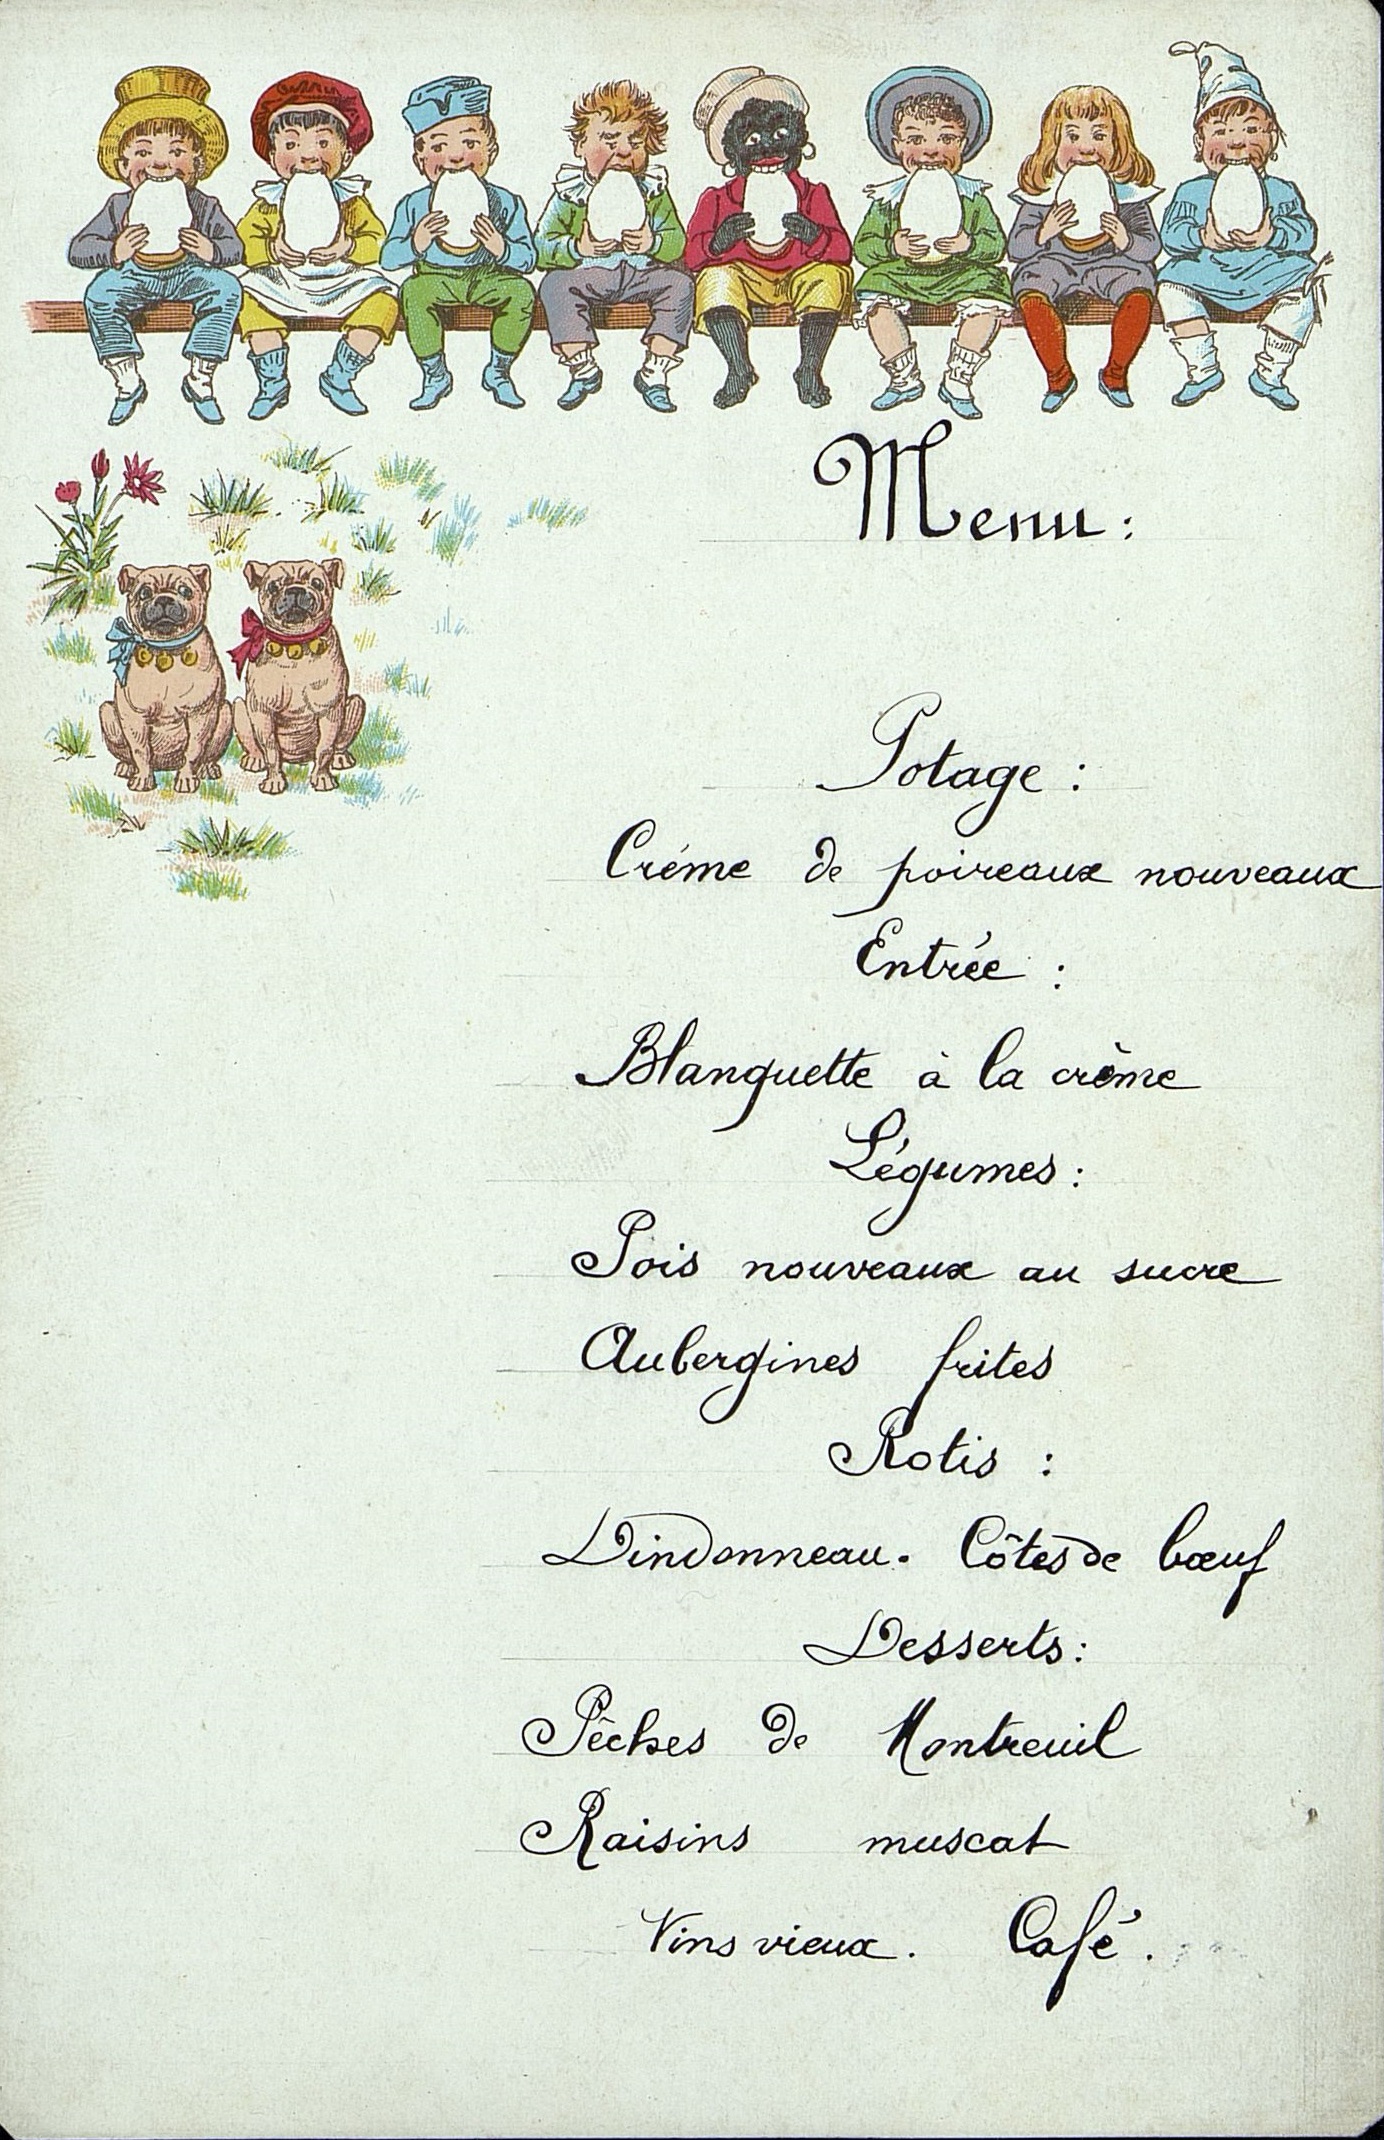 Menu :
Potage :
Créme de poireaux nouveaux
Entrée :
Blanquette à la crème
Légumes :
Pois nouveaux au sucre
Aubergines frites
Rotis :
Dindonneau. Côtes de bœuf
Desserts :
Pêches de Montreuil
Raisins muscat
Vins vieux. Café.